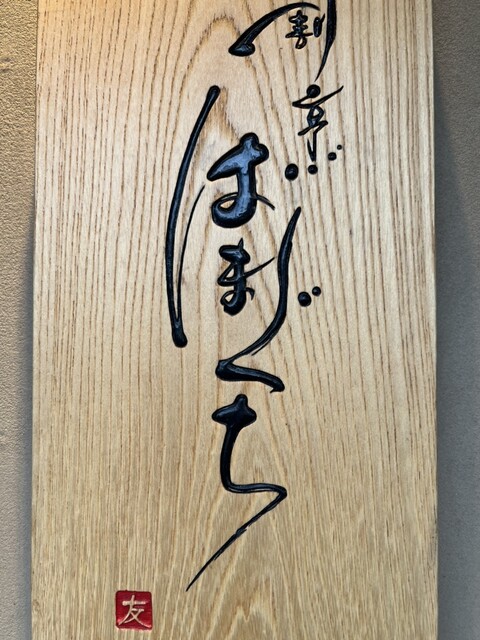 割烹
はまぐち
友